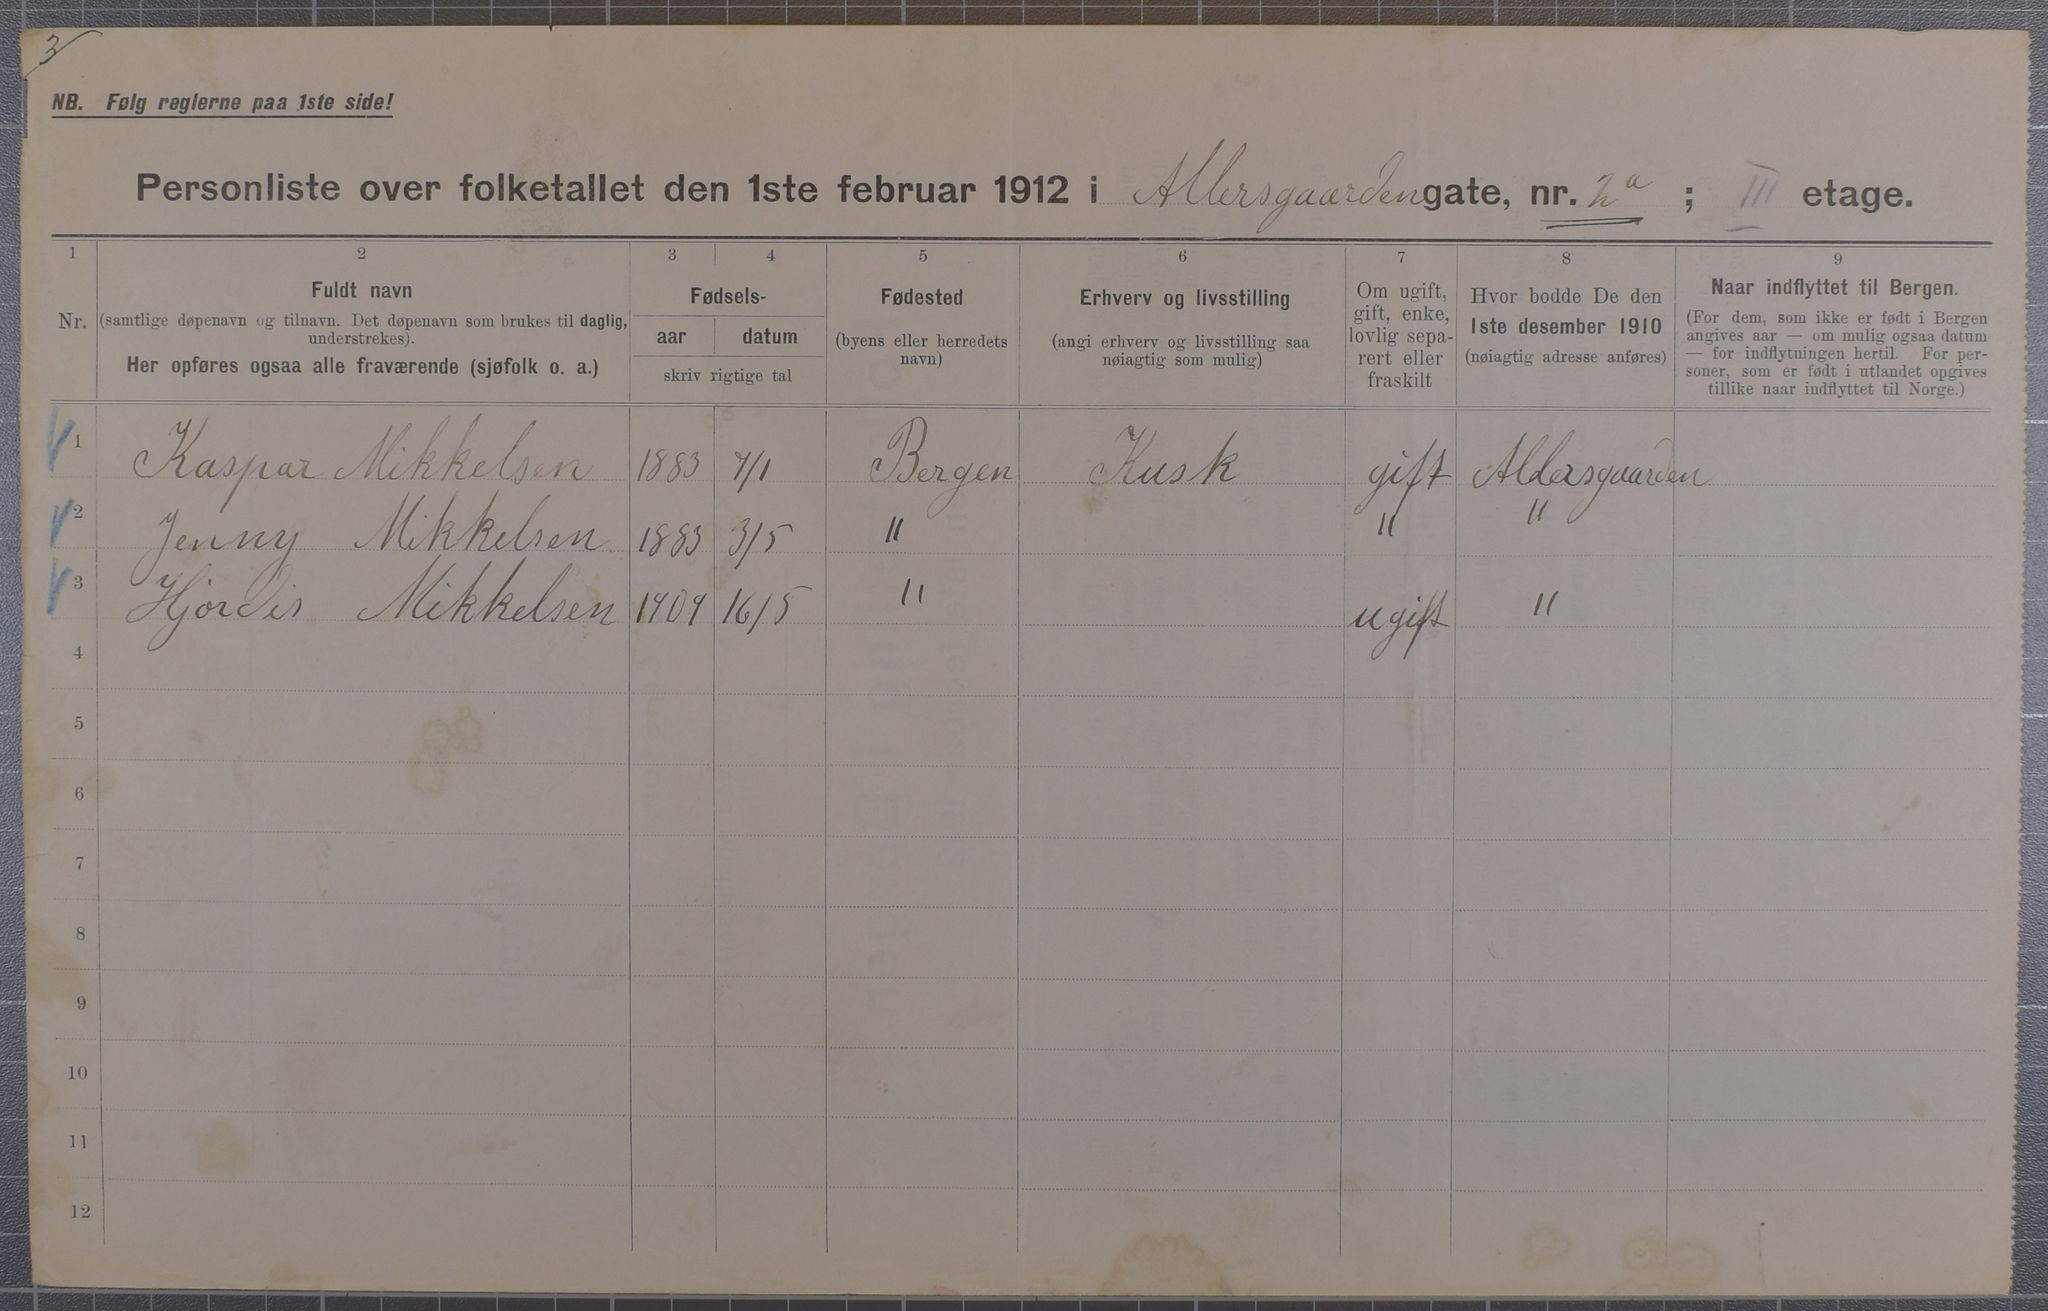 3
NB. Følg reglerne paa 1ste side!
Personliste over folketallet den 1ste februar 1912 i Allersgaarden gate, nr. 2a ; III etage.
1 2 3 4 5 6 7 8 9
Nr.
Fuldt navn
(samtlige døpenavn og tilnavn. Det døpenavn som brukes til daglig, understrekes).
Her opføres ogsaa alle fraværende (sjøfolk o. a.)
Fødsels-
aar datum
skriv rigtige tal
Fødested
(byens eller herredets
navn)
Erhverv og livsstilling
(angi erhverv og livsstilling saa
nøiagtig som mulig)
Om ugift,
gift, enke,
lovlig sepa-
rert eller
fraskilt
Hvor bodde De den
1ste desember 1910
(nøiagtig adresse anføres)
Naar indflyttet til Bergen.
(For dem, som ikke er født i Bergen
angives aar — om mulig ogsaa datum
— for indflytningen hertil. For per-
soner, som er født i utlandet opgives
tillike naar indflyttet til Norge.)
1 Kaspar Mikkelsen 1883 7/1 Bergen Kusk gift Aldersgaarden
2 Jenny Mikkelsen 1883 3/5 " " "
3 Hjordis Mikkelsen 1909 16/5 " ugift "
4
5
6
7
8
9
10
11
12